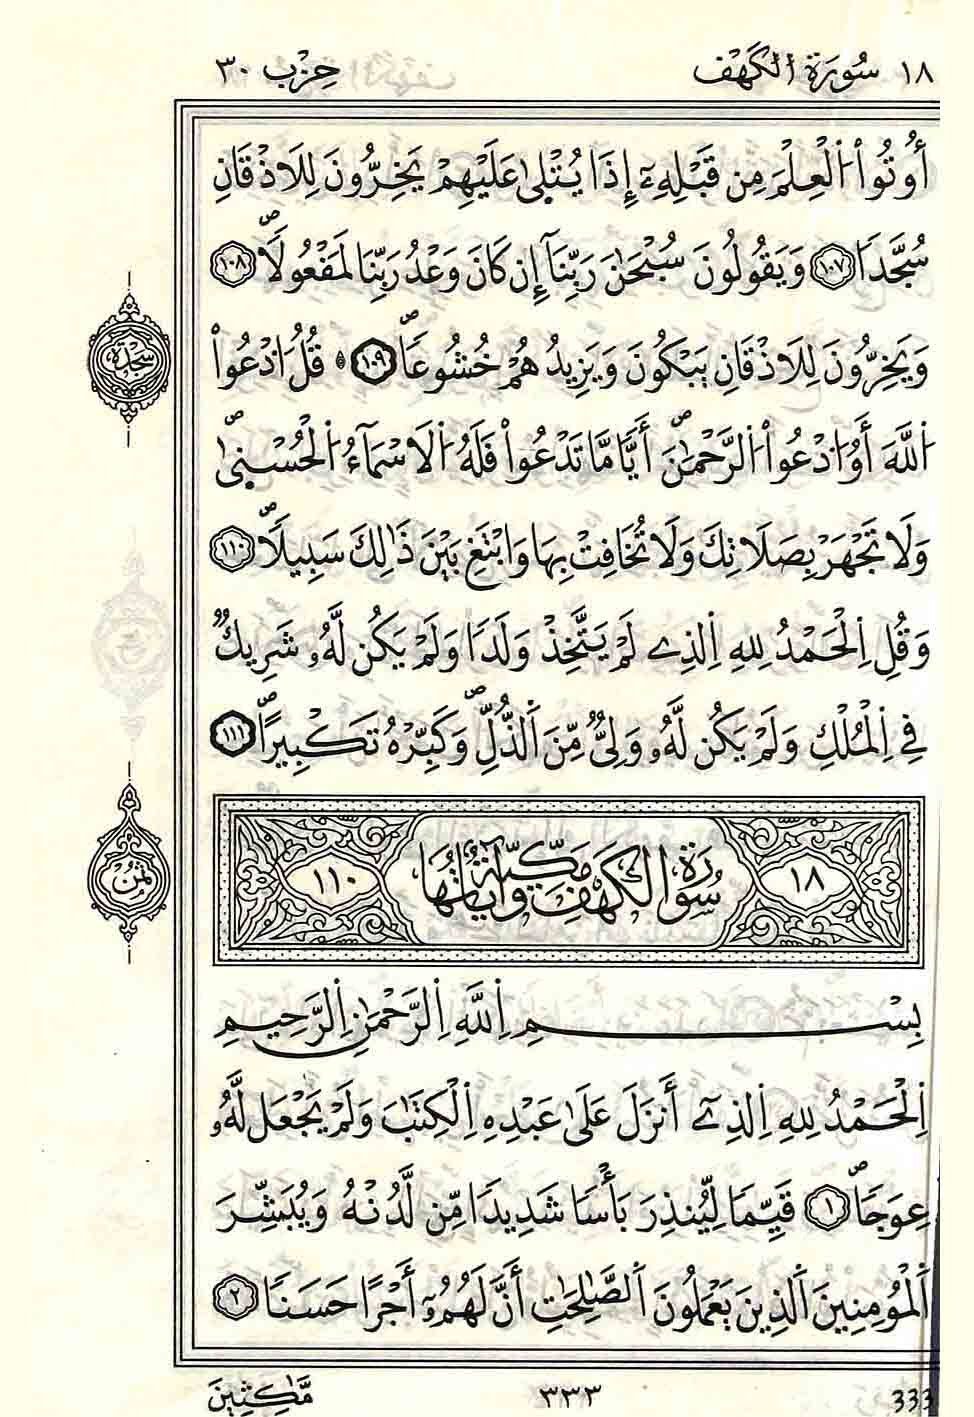 ١٨ سُورَةُ الْكَهْفِ حِزْب ٣٠
أُوتُواْ اُلْعِلْمَ مِن قَبْلِهِۦٓ إِذَا يُتْلٜىٰ عَلَيْهِمْ يَخِرُّونَ لِلَاذْقَانِ
سُجَّداٗ ١٠٧ وَيَقُولُونَ سُبْحَٰنَ رَبِّنَآ إِن كَانَ وَعْدُ رَبِّنَا لَمَفْعُولاٗۖ ١٠٨
وَيَخِرُّونَ لِلَاذْقَانِ يَبْكُونَ وَيَزِيدُهُمْ خُشُوعاٗۖ ١٠٩ قُلُ اُدْعُواْ
اُللَّهَ أَوُ اُدْعُواْ اُلرَّحْمَٰنَۖ أَيّاٗ مَّا تَدْعُواْ فَلَهُ اُلَاسْمَآءُ اُلْحُسْنٜىٰۖ
وَلَا تَجْهَرْ بِصَلَاتِكَ وَلَا تُخَافِتْ بِهَا وَابْتَغِ بَيْنَ ذَٰلِكَ سَبِيلاٗۖ ١١٠
وَقُلِ اِلْحَمْدُ لِلهِ اِلذِے لَمْ يَتَّخِذْ وَلَداٗ وَلَمْ يَكُن لَّهُۥ شَرِيكٞ
فِے اِلْمُلْكِ وَلَمْ يَكُن لَّهُۥ وَلِيّٞ مِّنَ اَلذُّلِّۖ وَكَبِّرْهُ تَكْبِيراٗۖ ١١١
سجدة
ثمن
١٨ سُورَةُ الْكَهْفِ مَكِّيَّةٌ وَآيَاتُهَا ١١٠
بِسْمِ اِللَّهِ اِلرَّحْمَٰنِ اِلرَّحِيمِ
اِلْحَمْدُ لِلهِ اِلذِےٓ أَنزَلَ عَلَىٰ عَبْدِهِ اِلْكِتَٰبَ وَلَمْ يَجْعَل لَّهُۥ
عِوَجاٗۖ ١ قَيِّماٗ لِّيُنذِرَ بَأْساٗ شَدِيداٗ مِّن لَّدُنْهُ وَيُبَشِّرَ
اَلْمُؤْمِنِينَ اَلذِينَ يَعْمَلُونَ اَلصَّٰلِحَٰتِ أَنَّ لَهُمُۥٓ أَجْراً حَسَناٗ ٢
مَّٰكِثِينَ ٣٣٣ 333